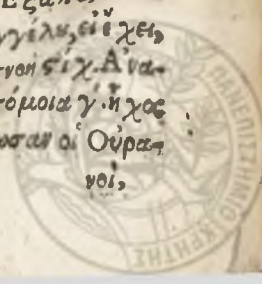 γγέλυ, εἰ ἔχει,
στίχ. Ἀνα-
τόμοια γ. ἦχος
ωσαν οἱ Οὐρα-
νοὶ,
ΠΑΝΕΠΙΣΤΗΜΙΟ ΚΡΗΤΗΣ